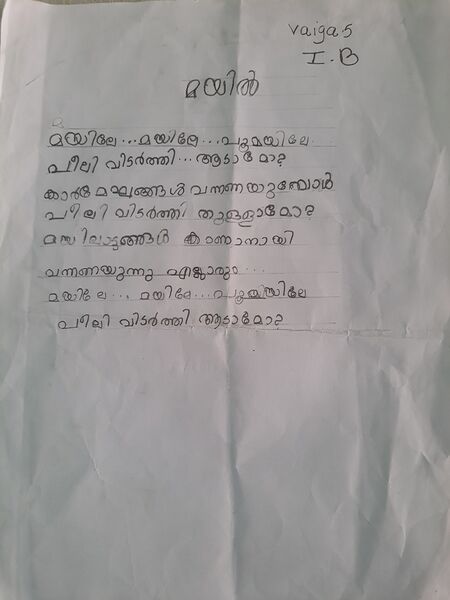 Vaiga.S
I.B
മയിൽ
മയിലേ...മയിലേ...പൂമയിലേ
പീലി വിടർത്തി...ആടാമോ?
കാർമേഘങ്ങൾ വന്നണയുമ്പോൾ
പീലി വിടർത്തി തുള്ളാമോ?
മയിലാട്ടങ്ങൾ കാണാനായി
വന്നണയുന്നു എല്ലാരും...
മയിലേ... മയിലേ...പൂമയിലേ
പീലി വിടർത്തി ആടാമോ?